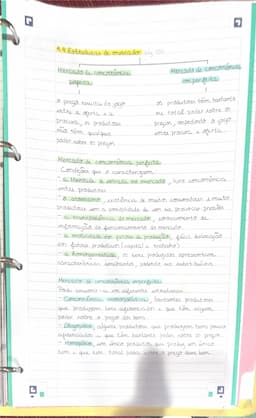 4.4 Estruturas de mercado
Mercado de concorrência Mercado de concorrência
perfeita imperfeita
o preço resulta do jogo os produtores têm bastante
entre a oferta e a ou total poder sobre os
procura, os produtores preços, impedindo o jogo
não têm qualquer entre procura e oferta
poder sobre os preços
Mercado de concorrência perfeita
Condições que a caracterizam
a liberdade de entrada no mercado, livre concorrência
entre produtores
o atomismo, existência de muitos consumidores e muitos
produtores sem a capacidade de um só, provocar
a transparência do mercado, conhecimento de
informação do funcionamento do mercado
a mobilidade dos fatores de produção, fácil
dos fatores produtivos (capital e trabalho)
a homogeneidade, os bens produzidos apresentam
características semelhantes, podendo ser substituíveis
Mercado de concorrência imperfeita
Pode assumir-se em diferentes estruturas
Concorrência monopolística, bastantes produtores
que produzem bens diferenciados e que têm algum
poder sobre o preço do bem
Oligopólio, alguns produtores que produzem bens pouco
diferenciados e que têm bastante poder sobre o preço
Monopólio, um único produtor que produz um único
bem e que tem total poder sobre o preço desse bem